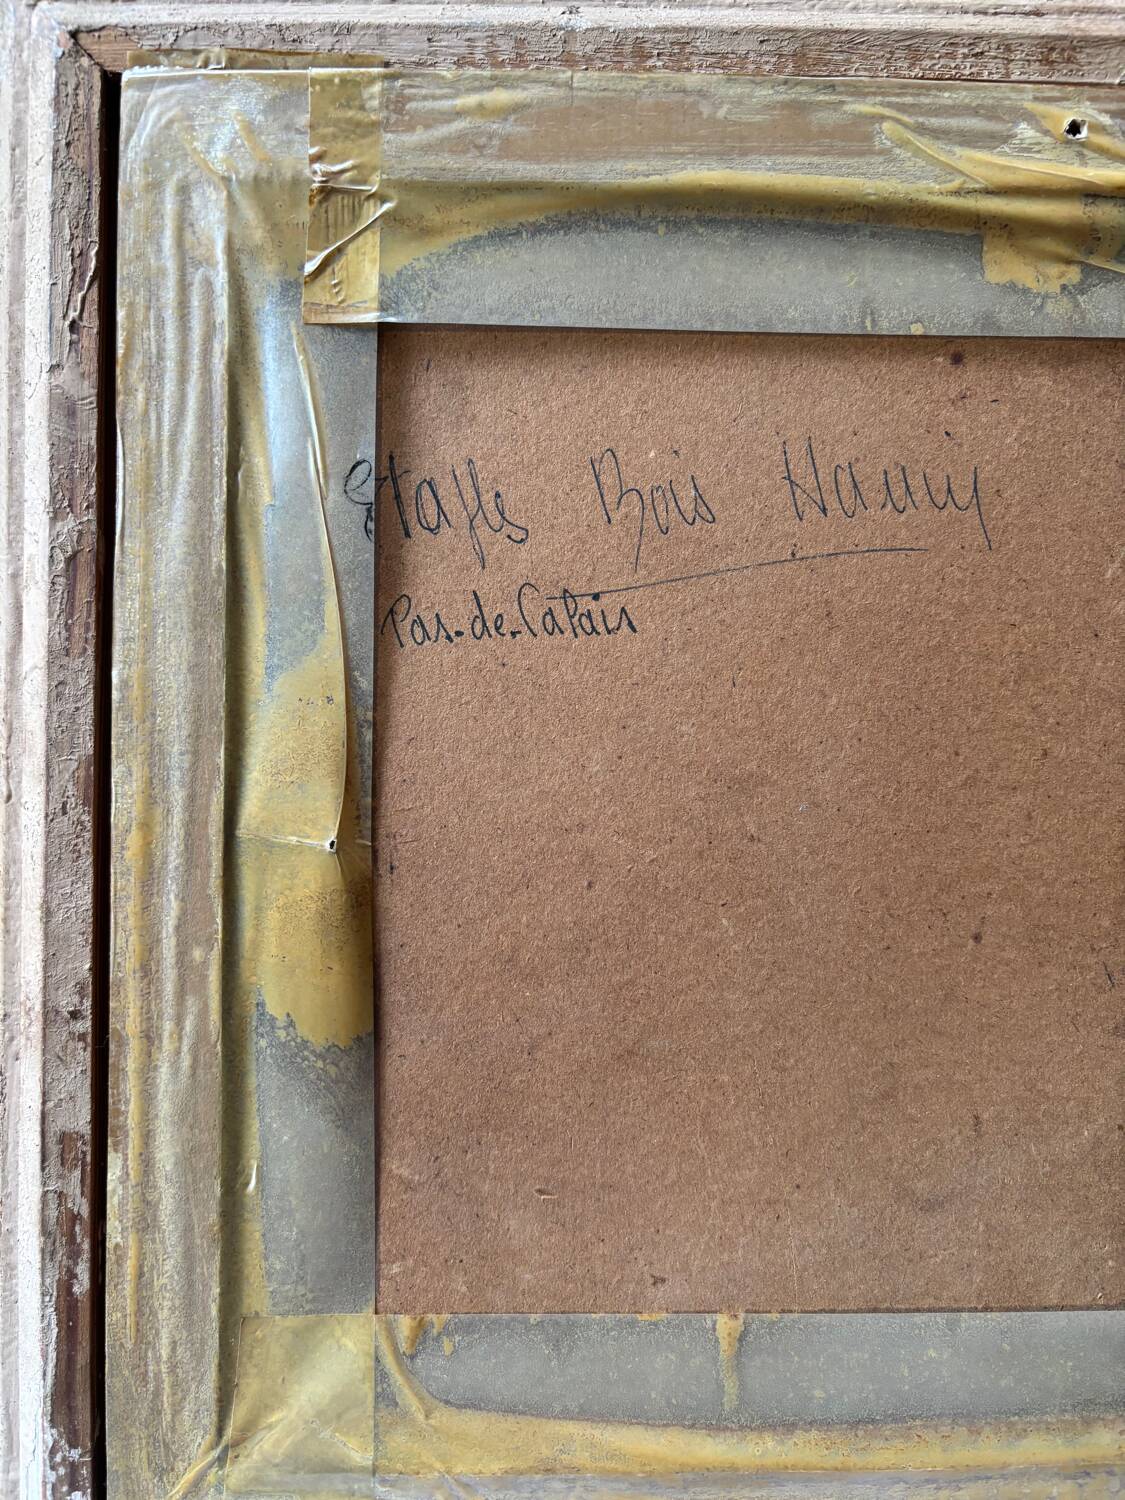 Etaples Bois
Pas-de-Calais